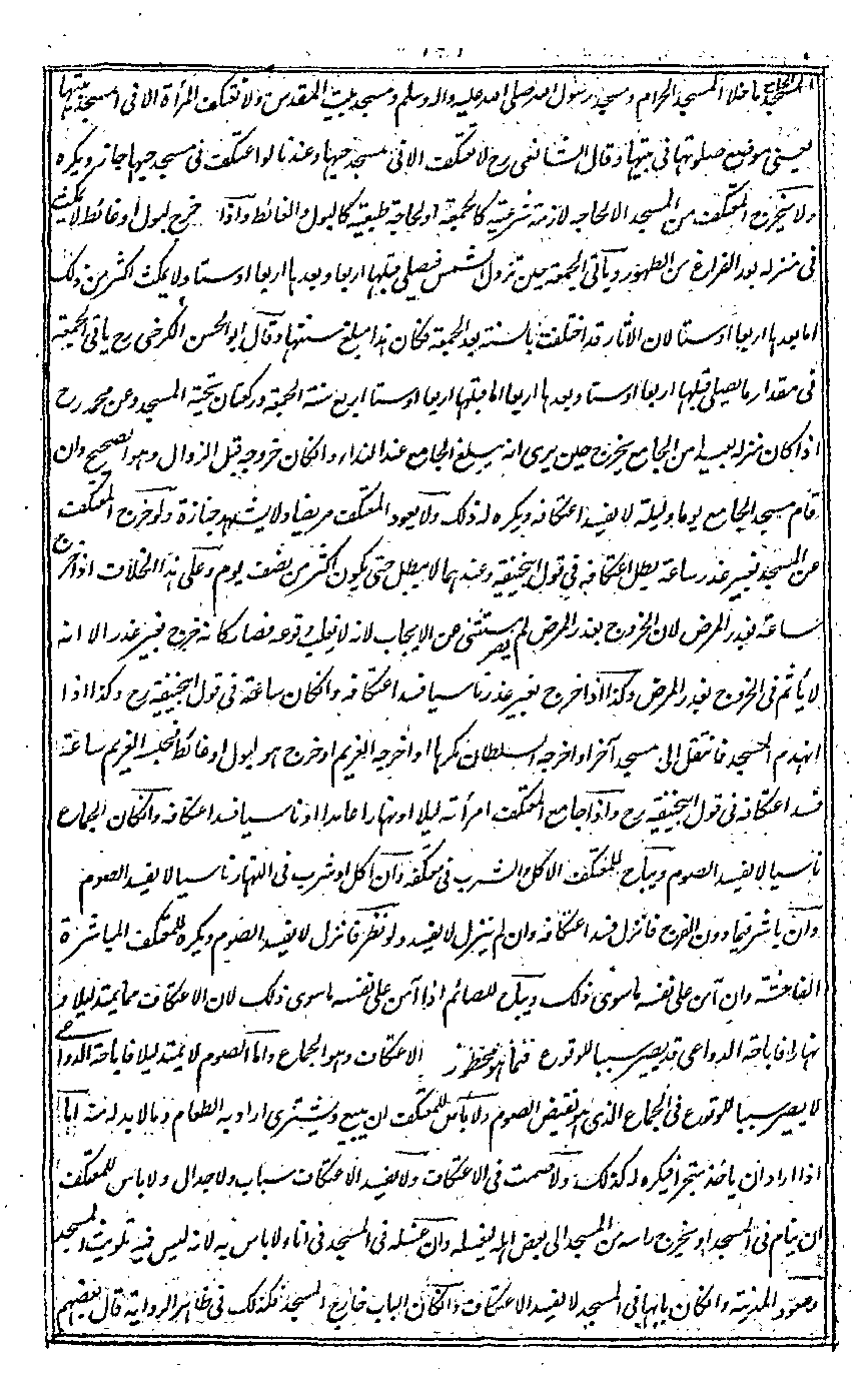 ما خلا المسجد الحرام ومسجد رسول الله صلى الله عليه واله وسلم ومسجد بيت المقدس ولا تعتكف المرأة الا فى مسجد بيتها
يعنى موضع صلوتها فى بيتها وقال الشافعى رح لا تعتكف الا فى مسجد حيها وعندنا لو اعتكفت فى مسجد حيها جاز ويكره
ولا يخرج المعتكف من المسجد الا لحاجه لازمة شرعية كالجمعة او لحاجة طبعية كالبول والغائط واذا خرج لبول او غائط لا يمكث
فى منزله بعد الفراغ من الطهور ويأتى الجمعة حين تزول الشمس فيصلى قبلها اربعا وبعدها اربعا او ستا ولا يمكث اكثر من ذلك
اما بعدها اربعا او ستا لان الآثار قد اختلفت بالسنة بعد الجمعة فكان هذا مبلغ سنتها وقال ابو الحسن الكرخى رح ياتى الجمعة
فى مقدار ما يصلى قبلها اربعا او ستا وبعدها اربعا اما قبلها اربعا او ستا اربع سنة الجمعة وركعتان تحية المسجد وعن محمد رح
اذا كان منزله بعيدا من الجامع يخرج حين يرى انه يبلغ الجامع عند النداء وانكان خروجه قبل الزوال وهو الصحيح وان
قام مسجد الجامع يوما وليلة لا يفسد اعتكافه ويكره له ذلك ولا يعود المعتكف مريضا ولا يشهد جنازة ولو خرج المعتكف
عن المسجد بغير عذر ساعة بطل اعتكافه فى قول ابيحنيفة وعندهما لا يبطل حتى يكون اكثر من نصف يوم وعلى هذا الخلاف اذا خرج
ساعة بعذر المرض لان الخروج بعذر المرض لم يصر مستثنى عن الايجاب لانه لا يغلب وقوعه فصار كانه خرج بغير عذر الا انه
لا يأثم فى الخروج بعذر المرض وكذا اذا خرج بغير عذر ناسيا فسد اعتكافه وانكان ساعة فى قول ابيحنيفة رح وكذا اذا
انهدم المسجد فانتقل الى مسجد آخر او اخرجه السلطان كرها او اخرجه الغريم او خرج هو لبول او غائط فحبسه الغريم ساعة
فسد اعتكافه فى قول ابيحنيفة رح واذا جامع المعتكف امرأته ليلا او نهارا عامدا او ناسيا فسد اعتكافه وانكان الجماع
ناسيا لا يفسد الصوم ويباح للمعتكف الاكل والشرب فى معتكفه وان اكل او شرب فى النهار ناسيا لا يفسد الصوم
وان باشر فيما دون الفرج فانزل فسد اعتكافه وان لم ينزل لا يفسد ولو نظر فانزل لا يفسد الصوم ويكره للمعتكف المباشرة
الفاحشة وان آمن على نفسه ما سوى ذلك ويباح للصائم اذا آمن على نفسه ما سوى ذلك لان الاعتكاف مما يمتد ليلا و
نهارا فاباحة الدواعى قد يصير سببا للوقوع فيما هو محظور الاعتكاف وهو الجماع واما الصوم لا يمتد ليلا فاباحة الدواعى
لا يصير سببا للوقوع فى الجماع الذى هو نقيض الصوم ولا باس للمعتكف ان يبيع ويشترى اراد به الطعام وما لا بد له منه اما
اذا اراد ان ياخذ متجرا فيكره له كذلك ولا صمت فى الاعتكاف ولا يفسد الاعتكاف سباب ولا جدال ولا باس للمعتكف
ان ينام فى المسجد او يخرج راسه من المسجد الى بعض اهله ليغسله وان غسله فى المسجد فى اناء ولا باس به لانه ليس فيه تلويث المسجد
وصعود المئذنة وانكان بابها فى المسجد لا يفسد الاعتكاف وانكان الباب خارج المسجد فكذلك فى ظاهر الرواية قال بعضهم